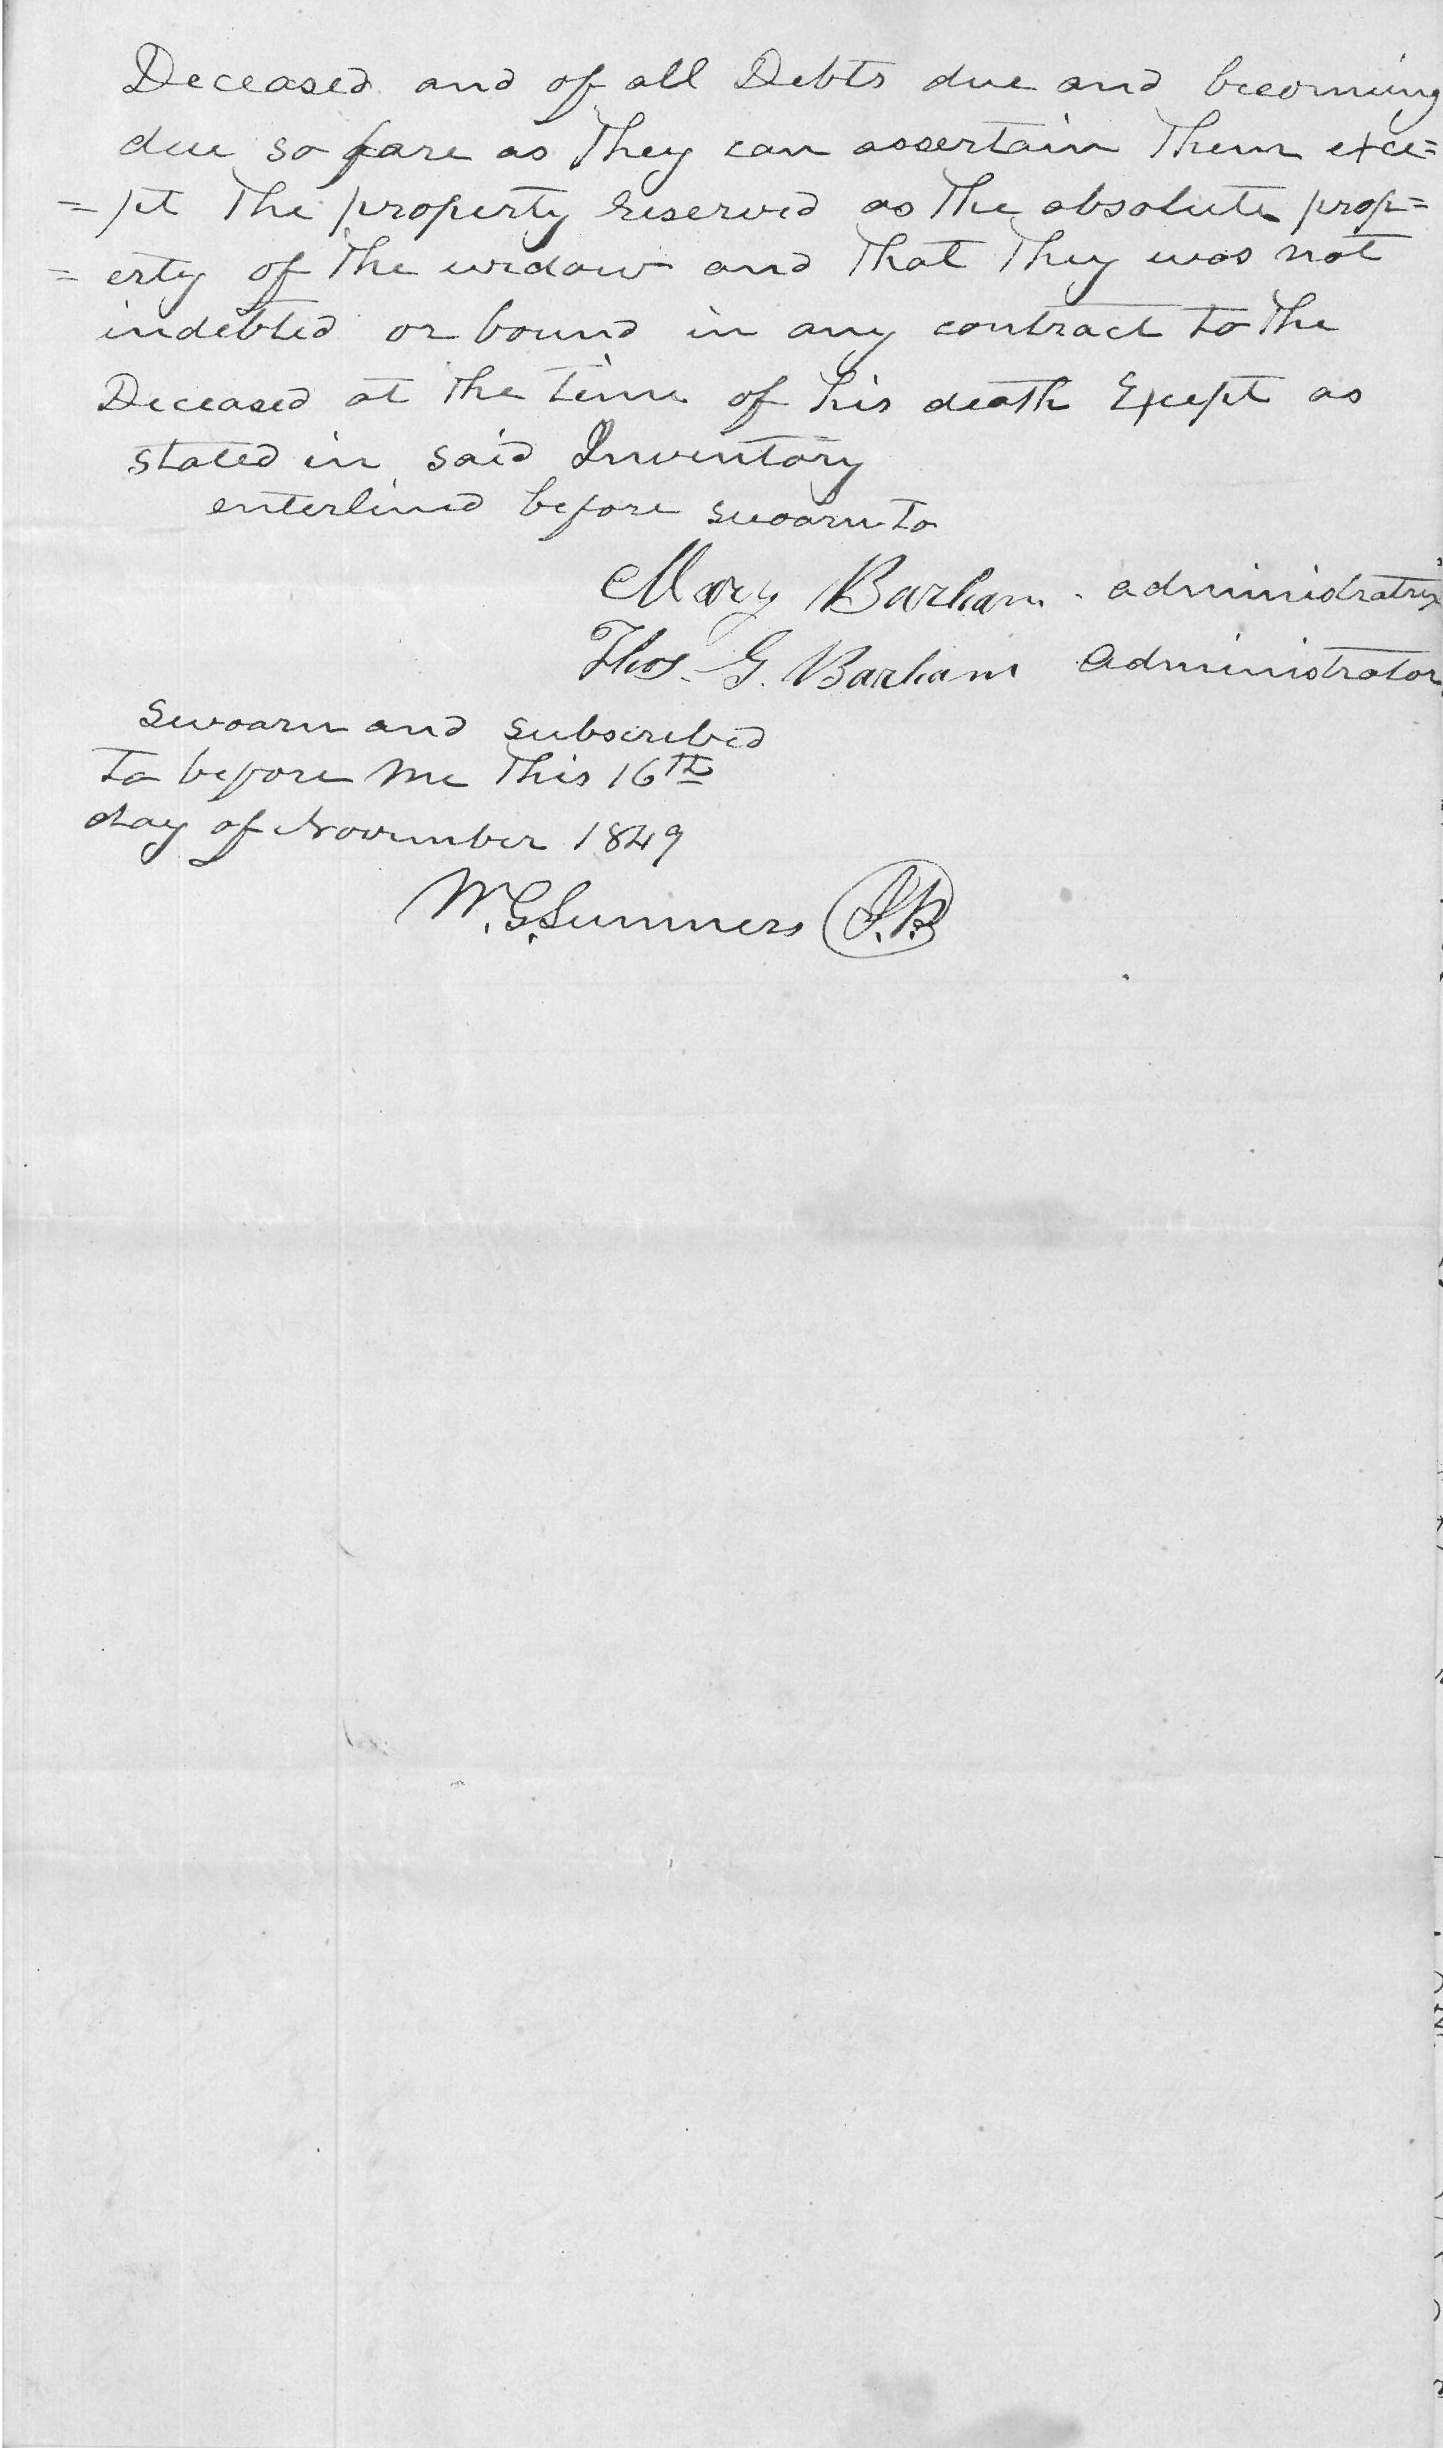 Deceased and of all Debts due and becoming
due so fare as They can assertain Them exce=
=pt The property reserved as The absolute prop=
=erty of The widow and That They was not
indebted or bound in any contract to The
Deceased at The time of his death Except as
stated in said Inventory
enterlined before sworn to
Mary Barham administratrix
Thos. G. Barham Administrator
Sworn and subscribed
To before Me This 16th
day of November 1849
W. G. Summers J.P.